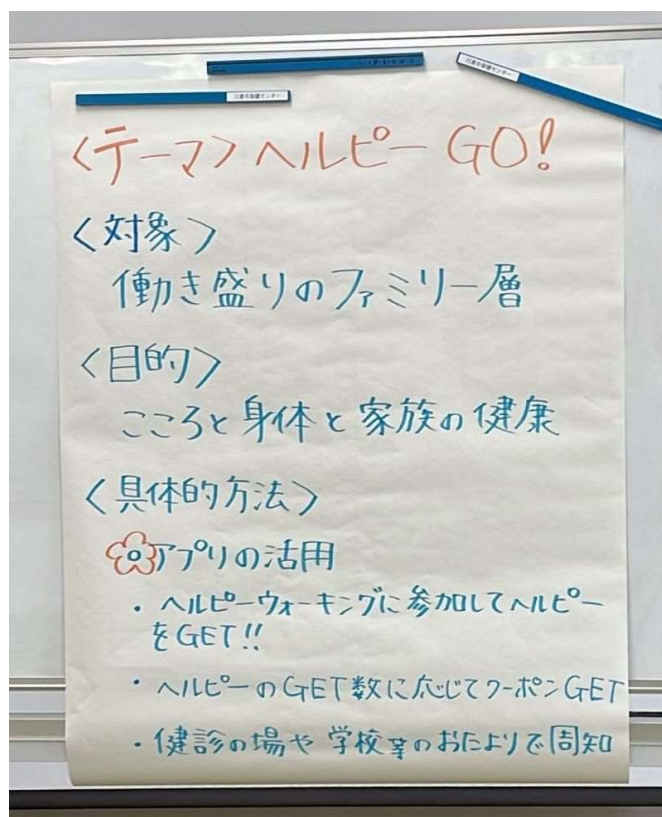 <テーマ> ヘルピー GO!
<対象>
働き盛りのファミリー層
<目的>
こころと身体と家族の健康
<具体的方法>
アプリの活用
・ヘルピーウォーキングに参加してヘルピー
をGET!!
・ヘルピーのGET数に応じてクーポンGET
・健診の場や学校等のおたよりで周知